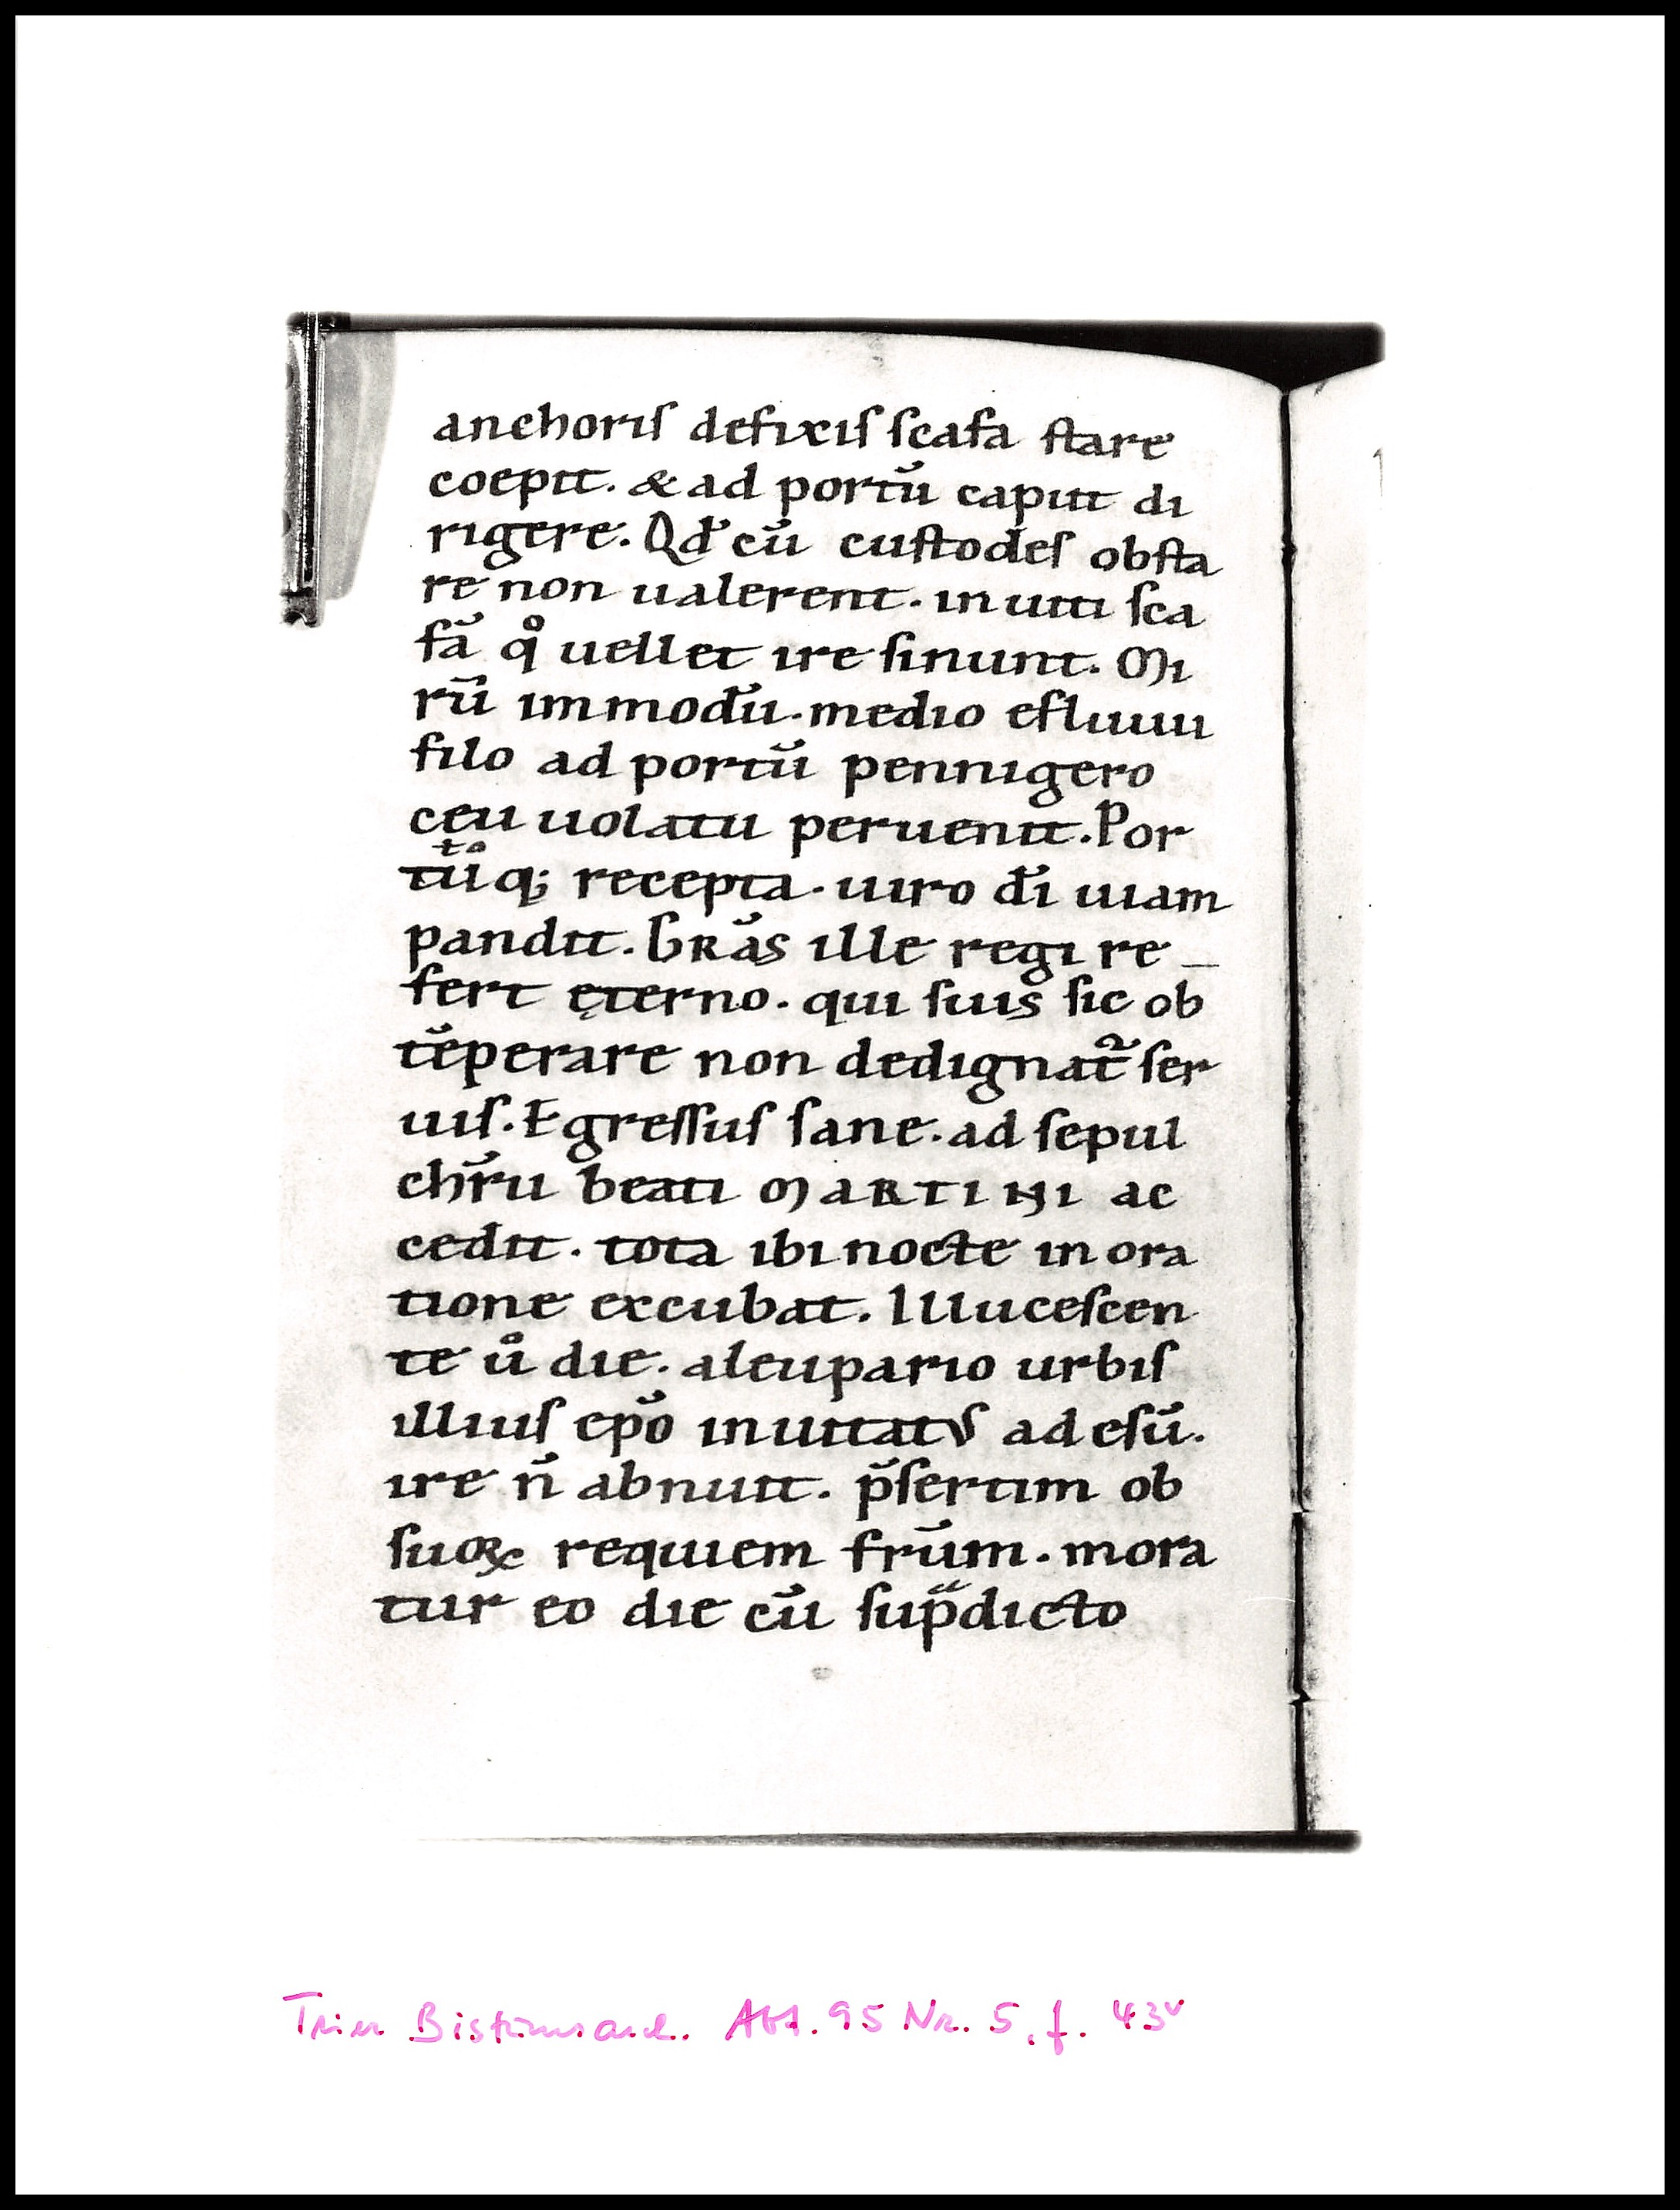 anchoriſ defixiſ ſcafa ſtare
coepit. & ad portū caput di
rigere. Qd̄ cū cuſtodeſ obſta
re non ualerent. inuiti ſca
fā qͦ uellet ire ſinunt. Mi
rū immodū. medio efluuii
filo ad portū pennigero
ceu uolatu peruenit. Por
tūq; recepta. uiro dī uiam
pandit. Grās ille regi re
fert ęterno. qui ſuis ſic ob
tēperare non dedignat᷑ ſer
uiſ. Egreſſuſ ſane. ad ſepul
chr̄u beati MARTINI ac
cedit. tota ibi nocte in ora
tione excubat. Illuceſcen
te uͦ die. a leupario urbiſ
illiuſ ep̄o inuitatuſ ad eſū.
ire n̄ abnuit. p̄ſertim ob
ſuoꝝ requiem fr̄um. mora
tur eo die cū ſup̄dicto
Trier Bistumsarch. Abt. 95 Nr. 5, f. 43v